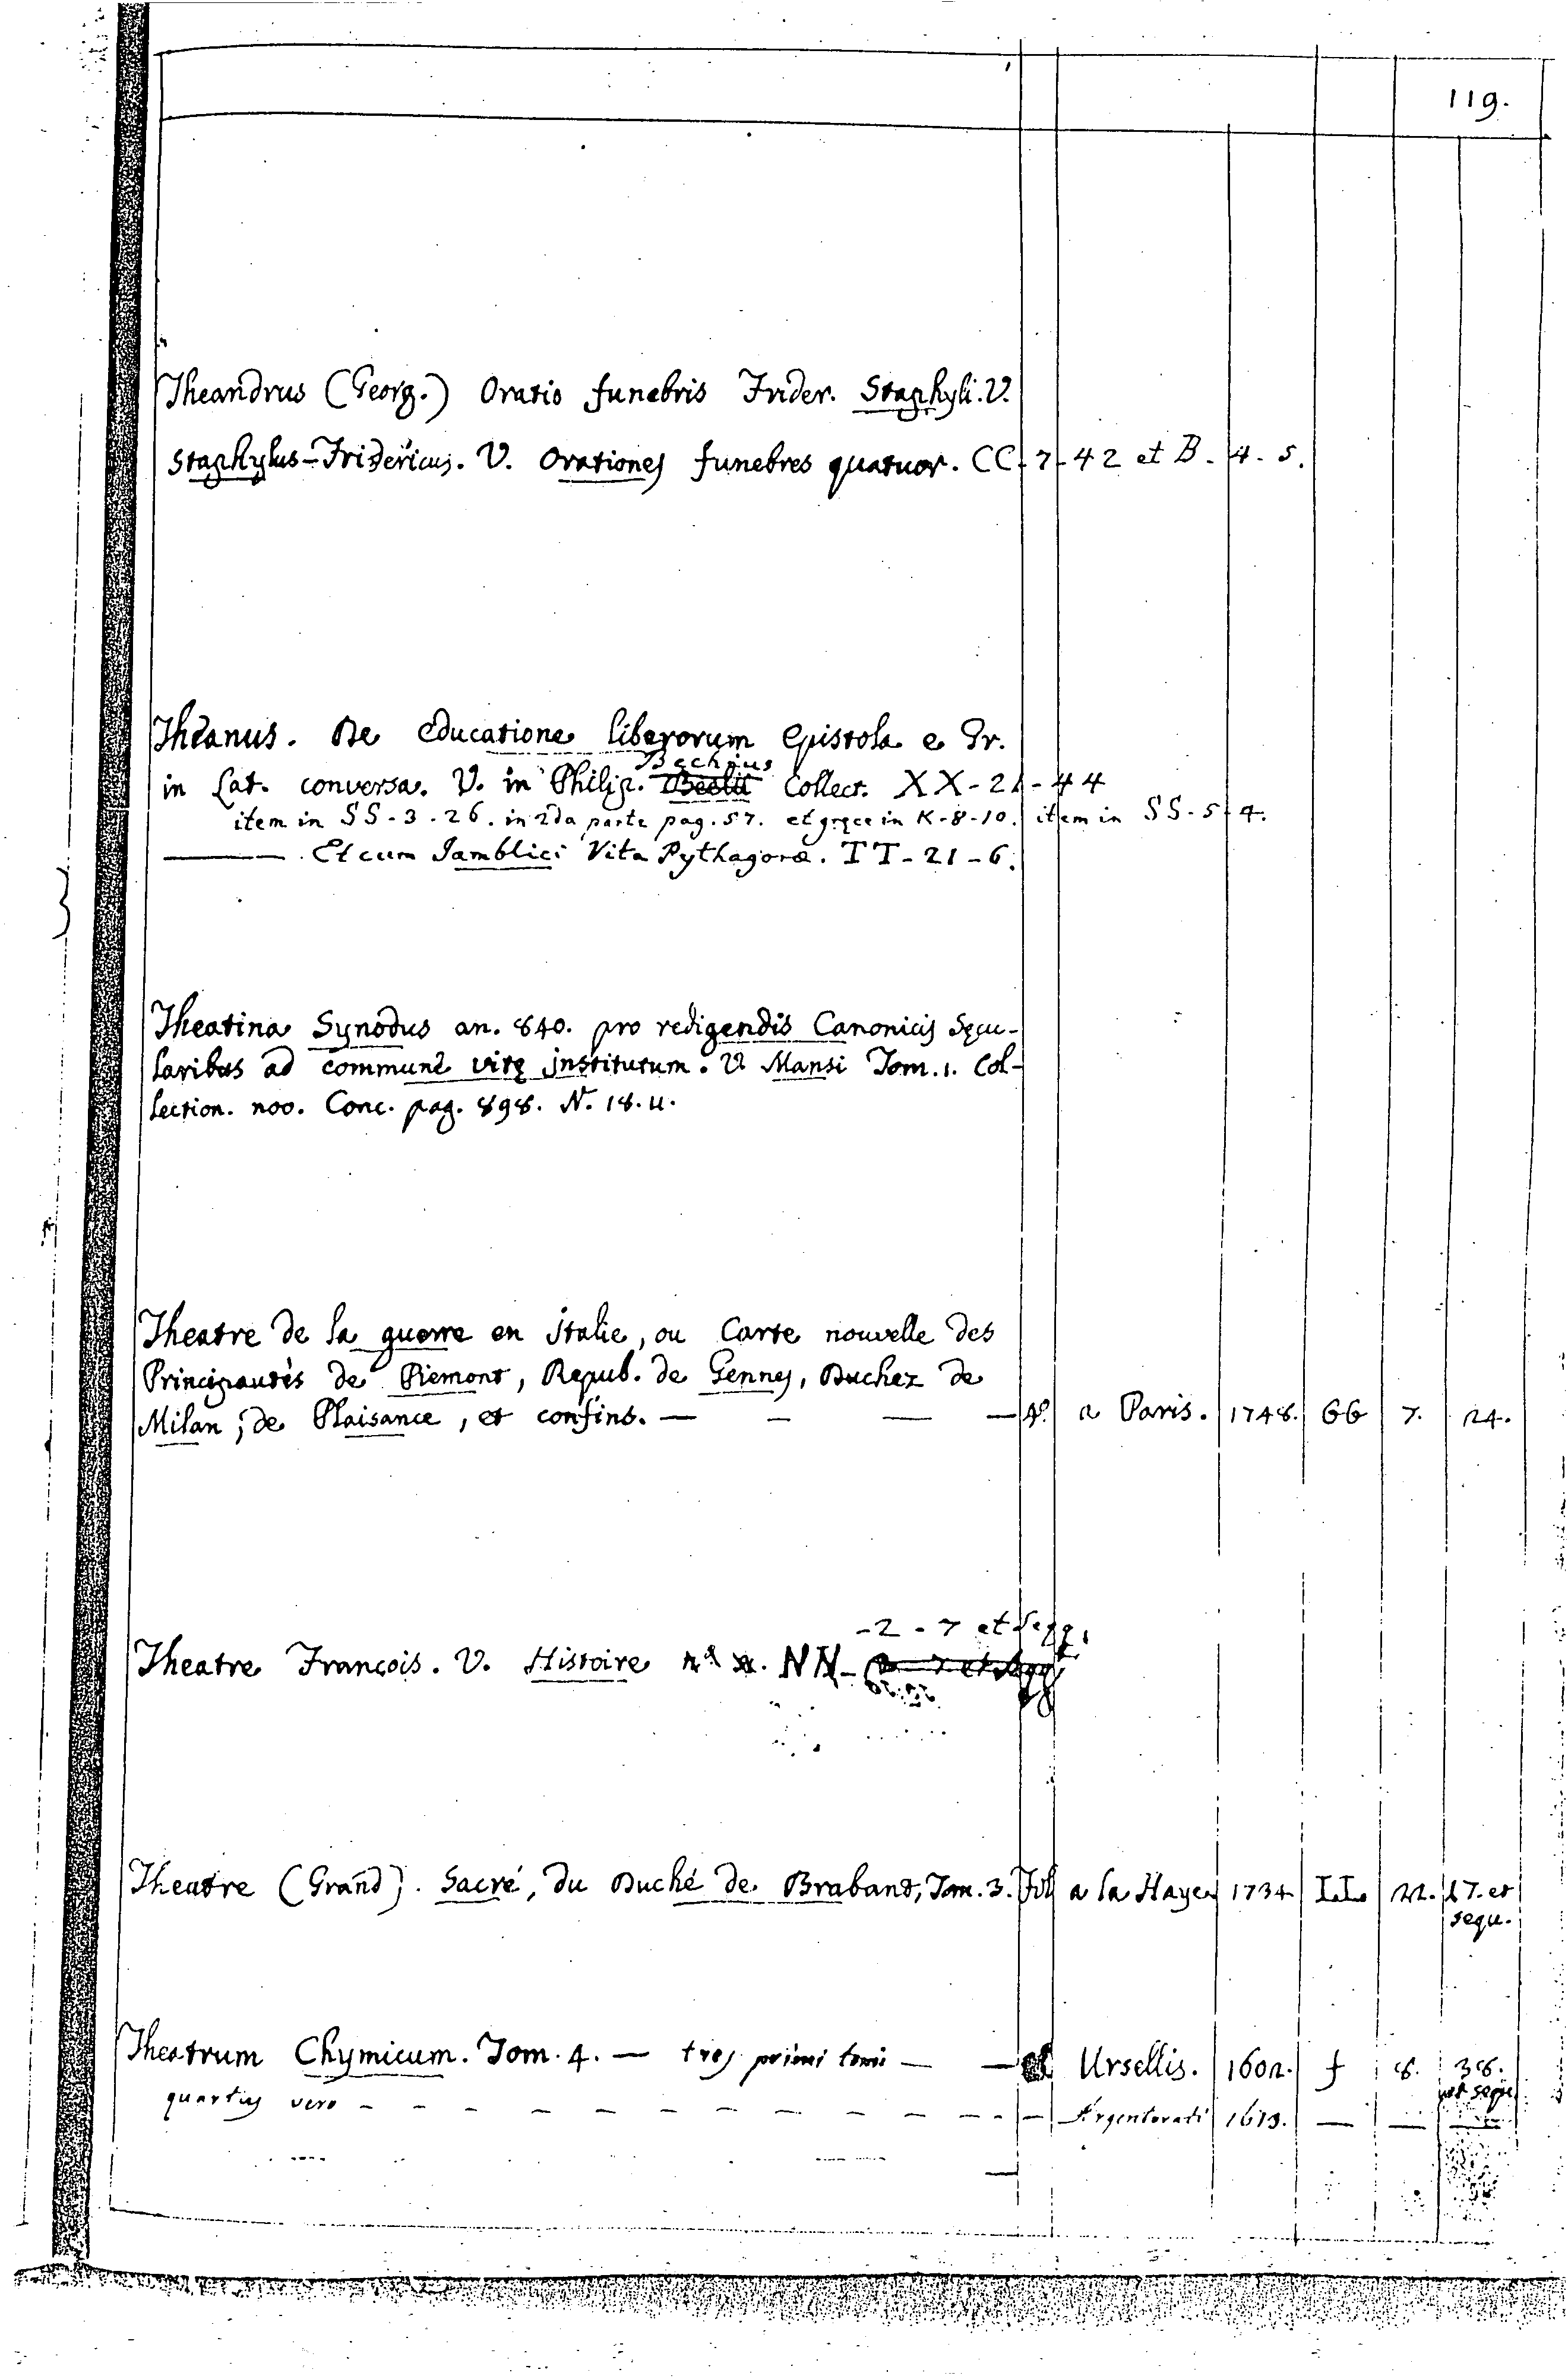 119.
Theandrus (Georg.) Oratio funebris Frider. Staphyli. V.
Staphylus-Fridericus. V. Orationes funebres quatuor. CC-7-42 et B-4-5.
Theanus. De educatione liberorum epistola e Gr.
Bechius
in Lat. conversa. V. in Philip. Collect. XX-21-44
item in SS-3-26. in 2da parte pag. 57. et gręce in K-8-10. item in SS-5-4.
Et cum Iamblici Vita Pythagoræ. TT-21-6.
Theatina Synodus an. 840. pro redigendis Canonicis Sęcu-
laribus ad communē vitę institutum. V Mansi Tom. 1. Col-
lection. noo. Conc. pag. 898. N. 18. u.
Theatre de la guerre en italie, ou Carte nouvelle des
Principautés de Piemont, Repub. de Gennes, Duchez de
Milan, de Plaisance, et confins. — — — — 4º. a Paris. 1748. GG 7. 24.
-2-7 et seqq.
Theatre François. V. Histoire NN-
Theatre (Grand). Sacré, du Duché de Brabant, Tom. 3. Fol a la Haye 1734 LL 22. 17. et
sequ.
Theatrum Chymicum. Tom. 4. — tres primi tomi — — Ursellis. 1602. f 8. 38.
et sequ.
quartus vero - - - - - - - - - - Argentorati 1613. — — —